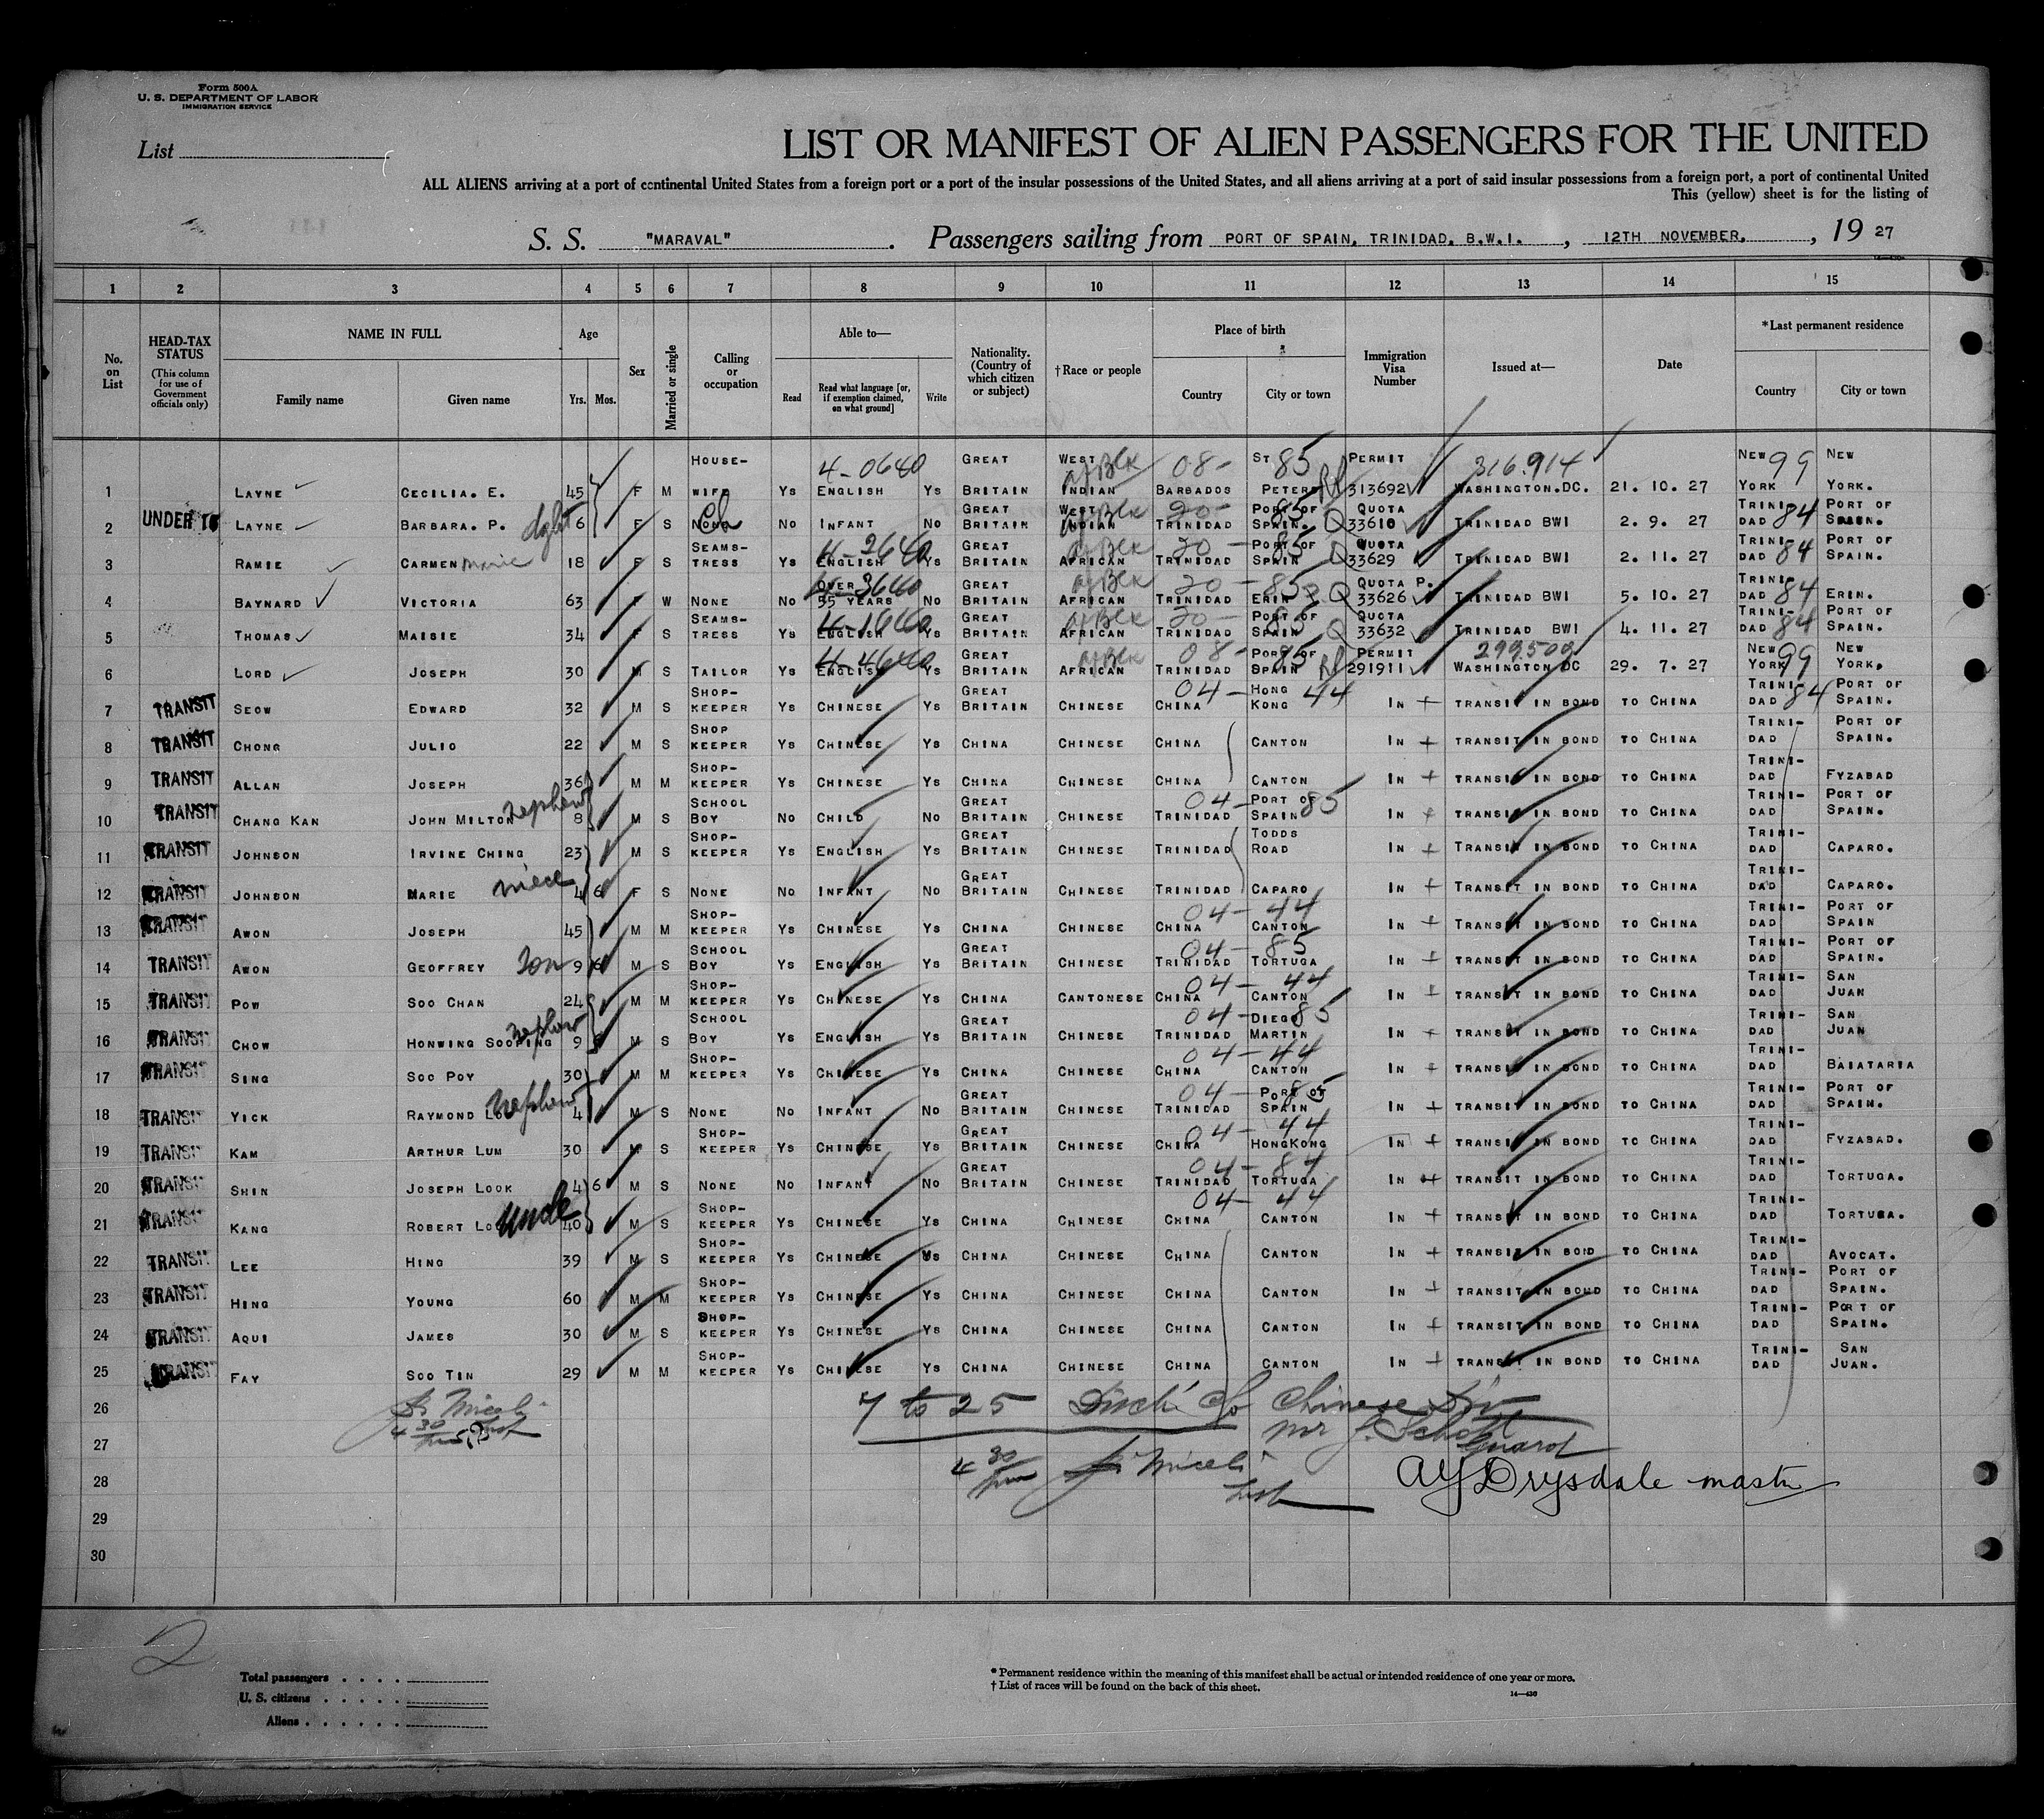 Form 500A
U. S. DEPARTMENT OF LABOR
IMMIGRATION SERVICE
List
LIST OR MANIFEST OF ALIEN PASSENGERS FOR THE UNITED
ALL ALIENS arriving at a port of continental United States from a foreign port or a port of the insular possessions of the United States, and all aliens arriving at a port of said insular possessions from a foreign port, a port of continental United
This (yellow) sheet is for the listing of
S. S. "MARAVAL". Passengers sailing from PORT OF SPAIN, TRINIDAD, B.W.I., 12TH NOVEMBER, 19 27
1 2 3 4 5 6 7 8 9 10 11 12 13 14 15
No. on List
HEAD-TAX STATUS (This column for use of Government officials only)
NAME IN FULL Family name Given name
Age Yrs. Mos.
Sex
Married or single
Calling or occupation
Able to— Read Read what language [or, if exemption claimed, on what ground] Write
Nationality. (Country of which citizen or subject)
†Race or people
Place of birth Country City or town
Immigration Visa Number
Issued at—
Date
*Last permanent residence Country City or town
1 LAYNE CECILIA. E. 45 F M HOUSE-WIFE YS ENGLISH 4-0640 YS GREAT BRITAIN WEST INDIAN af Blk BARBADOS 08- ST PETERS 85 PERMIT 313692 316.914 WASHINGTON.DC. 21. 10. 27 NEW YORK 99 NEW YORK.
2 UNDER 16 LAYNE BARBARA. P. dght 6 F S NONE Ch NO INFANT NO GREAT BRITAIN WEST INDIAN af Blk TRINIDAD 20- PORT OF SPAIN. 85 QUOTA Q 33610 TRINIDAD BWI 2. 9. 27 TRINI-DAD 84 PORT OF SPAIN.
3 RAMIE CARMEN Marie 18 F S SEAMS-TRESS YS ENGLISH 4-2640 YS GREAT BRITAIN AFRICAN af Blk TRINIDAD 20- PORT OF SPAIN 85 QUOTA Q 33629 TRINIDAD BWI 2. 11. 27 TRINI-DAD 84 PORT OF SPAIN.
4 BAYNARD VICTORIA 63 F W NONE NO OVER 55 YEARS 4-3640 NO GREAT BRITAIN AFRICAN af Blk TRINIDAD 20- ERIN 85 QUOTA P. Q 33626 TRINIDAD BWI 5. 10. 27 TRINI-DAD 84 ERIN.
5 THOMAS MAISIE 34 F S SEAMS-TRESS YS ENGLISH 4-1640 YS GREAT BRITAIN AFRICAN af Blk TRINIDAD 20- PORT OF SPAIN 85 QUOTA Q 33632 TRINIDAD BWI 4. 11. 27 TRINI-DAD 84 PORT OF SPAIN.
6 LORD JOSEPH 30 M S TAILOR YS ENGLISH 4-4640 YS GREAT BRITAIN AFRICAN af Blk TRINIDAD 08- PORT OF SPAIN 85 PERMIT 291911 299.500 WASHINGTON DC 29. 7. 27 NEW YORK 99 NEW YORK.
7 TRANSIT SEOW EDWARD 32 M S SHOP-KEEPER YS CHINESE YS GREAT BRITAIN CHINESE CHINA 04- HONG KONG 44 IN + TRANSIT IN BOND TO CHINA TRINI-DAD 84 PORT OF SPAIN.
8 TRANSIT CHONG JULIO 22 M S SHOP KEEPER YS CHINESE YS CHINA CHINESE CHINA CANTON IN + TRANSIT IN BOND TO CHINA TRINI-DAD PORT OF SPAIN.
9 TRANSIT ALLAN JOSEPH 36 M M SHOP-KEEPER YS CHINESE YS CHINA CHINESE CHINA CANTON IN + TRANSIT IN BOND TO CHINA TRINI-DAD FYZABAD
10 TRANSIT CHANG KAN JOHN MILTON nephew 8 M S SCHOOL BOY NO CHILD NO GREAT BRITAIN CHINESE TRINIDAD 04- PORT OF SPAIN 85 IN + TRANSIT IN BOND TO CHINA TRINI-DAD PORT OF SPAIN.
11 TRANSIT JOHNSON IRVINE CHING 23 M S SHOP-KEEPER YS ENGLISH YS GREAT BRITAIN CHINESE TRINIDAD TODDS ROAD IN + TRANSIT IN BOND TO CHINA TRINI-DAD CAPARO.
12 TRANSIT JOHNSON MARIE niece 4 6 F S NONE NO INFANT NO GREAT BRITAIN CHINESE TRINIDAD CAPARO IN + TRANSIT IN BOND TO CHINA TRINI-DAD CAPARO.
13 TRANSIT AWON JOSEPH 45 M M SHOP-KEEPER YS CHINESE YS CHINA CHINESE CHINA 04-44 CANTON IN + TRANSIT IN BOND TO CHINA TRINI-DAD PORT OF SPAIN
14 TRANSIT AWON GEOFFREY Son 9 6 M S SCHOOL BOY YS ENGLISH YS GREAT BRITAIN CHINESE TRINIDAD 04-85 TORTUGA IN + TRANSIT IN BOND TO CHINA TRINI-DAD PORT OF SPAIN.
15 TRANSIT POW SOO CHAN 24 M M SHOP-KEEPER YS CHINESE YS CHINA CANTONESE CHINA 04-44 CANTON IN + TRANSIT IN BOND TO CHINA TRINI-DAD SAN JUAN
16 TRANSIT CHOW HONWING SOO nephew 9 M S SCHOOL BOY YS ENGLISH YS GREAT BRITAIN CHINESE TRINIDAD 04- DIEGO MARTIN 85 IN + TRANSIT IN BOND TO CHINA TRINI-DAD SAN JUAN
17 TRANSIT SING SOO POY 30 M M SHOP-KEEPER YS CHINESE YS CHINA CHINESE CHINA 04-44 CANTON IN + TRANSIT IN BOND TO CHINA TRINI-DAD BAIATARIA
18 TRANSIT YICK RAYMOND nephew 4 M S NONE NO INFANT NO GREAT BRITAIN CHINESE TRINIDAD 04- PORT OF SPAIN 85 IN + TRANSIT IN BOND TO CHINA TRINI-DAD PORT OF SPAIN.
19 TRANSIT KAM ARTHUR LUM 30 M S SHOP-KEEPER YS CHINESE YS GREAT BRITAIN CHINESE CHINA 04-44 HONGKONG IN + TRANSIT IN BOND TO CHINA TRINI-DAD FYZABAD.
20 TRANSIT SHIN JOSEPH LOOK 4 6 M S NONE NO INFANT NO GREAT BRITAIN CHINESE TRINIDAD 04-84 TORTUGA IN + TRANSIT IN BOND TO CHINA TRINI-DAD TORTUGA.
21 TRANSIT KANG ROBERT uncle 40 M S SHOP-KEEPER YS CHINESE YS CHINA CHINESE CHINA 04-44 CANTON IN + TRANSIT IN BOND TO CHINA TRINI-DAD TORTUGA.
22 TRANSIT LEE HING 39 M S SHOP-KEEPER YS CHINESE YS CHINA CHINESE CHINA CANTON IN + TRANSIT IN BOND TO CHINA TRINI-DAD AVOCAT.
23 TRANSIT HING YOUNG 60 M M SHOP-KEEPER YS CHINESE YS CHINA CHINESE CHINA CANTON IN + TRANSIT IN BOND TO CHINA TRINI-DAD PORT OF SPAIN.
24 TRANSIT AQUI JAMES 30 M S SHOP-KEEPER YS CHINESE YS CHINA CHINESE CHINA CANTON IN + TRANSIT IN BOND TO CHINA TRINI-DAD PORT OF SPAIN.
25 TRANSIT FAY SOO TIN 29 M M SHOP-KEEPER YS CHINESE YS CHINA CHINESE CHINA CANTON IN + TRANSIT IN BOND TO CHINA TRINI-DAD SAN JUAN.
26 7 to 25 Disch c/o Chinese Div
27 Mr J. Schott Guard
4 30 pm Miceli
28 A Y Drysdale master
29
30
2
Total passengers . . . .
U. S. citizens . . . . .
Aliens . . . . . .
* Permanent residence within the meaning of this manifest shall be actual or intended residence of one year or more.
† List of races will be found on the back of this sheet.
14—430